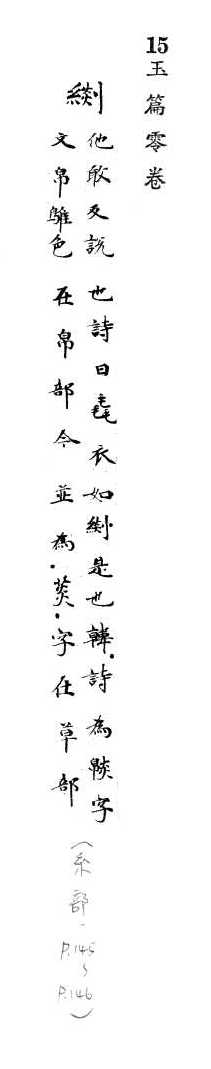 15玉篇零卷
他敢反說也詩曰毳衣如是也韓詩為字
文帛騅色在帛部今並為菼字在草部
(糸部-P.145~P.146)